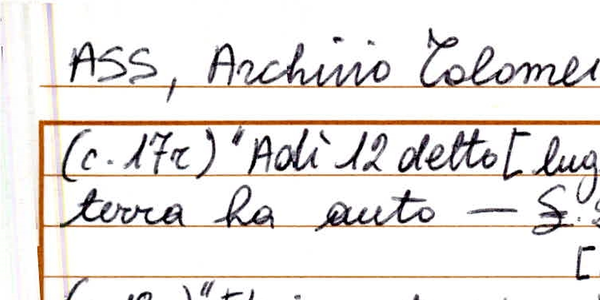 ASS, Archivio Tolomei
(c. 17r) "Adì 12 detto [ lug
terra ha auto —
[